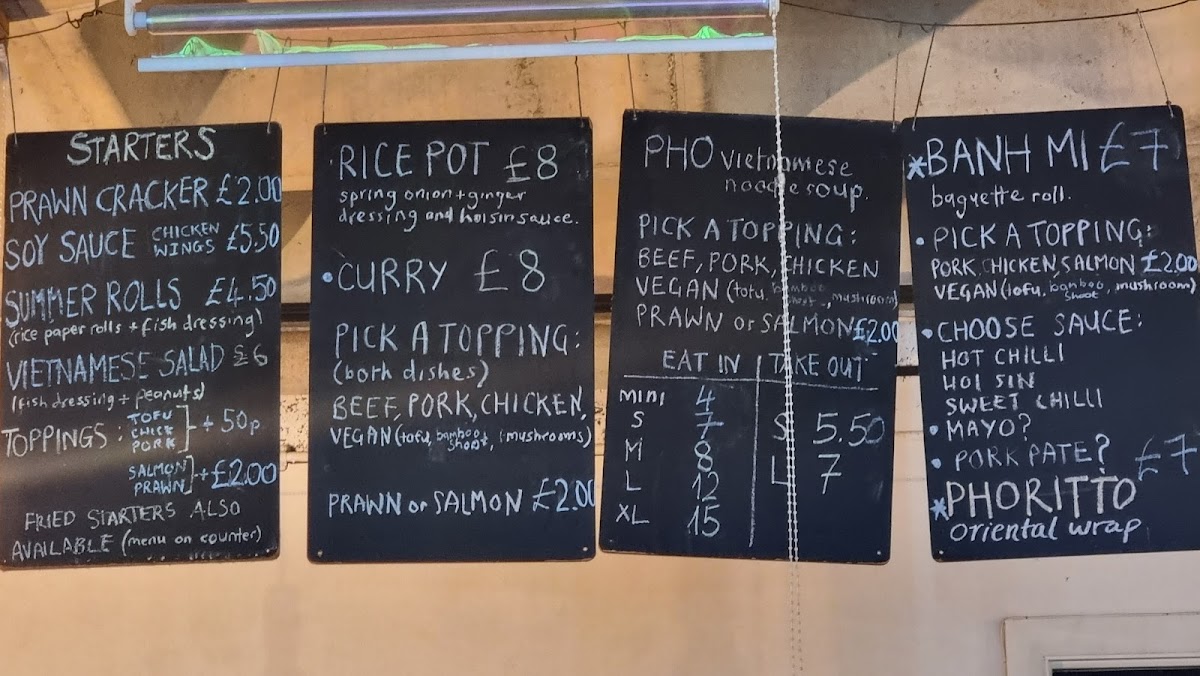 STARTERS
PRAWN CRACKER £2.00
SOY SAUCE CHICKEN WINGS £5.50
SUMMER ROLLS £4.50
(rice paper rolls + fish dressing)
VIETNAMESE SALAD £6
(fish dressing + peanuts)
TOPPINGS: TOFU CHICK PORK ] + 50p
SALMON PRAWN ] + £2.00
FRIED STARTERS ALSO
AVAILABLE (menu on counter)
RICE POT £8
spring onion + ginger
dressing and hoisin sauce.
• CURRY £8
PICK A TOPPING:
(both dishes)
BEEF, PORK, CHICKEN,
VEGAN (tofu, bamboo shoot, mushrooms)
PRAWN or SALMON £2.00
PHO Vietnamese
noodle soup.
PICK A TOPPING:
BEEF, PORK, CHICKEN
VEGAN (tofu, bamboo shoot, mushroom)
PRAWN or SALMON £2.00
EAT IN TAKE OUT
MINI 4
S 7 S 5.50
M 8 L 7
L 12
XL 15
*BANH MI £7
baguette roll.
• PICK A TOPPING:
PORK, CHICKEN, SALMON £2.00
VEGAN (tofu, bamboo shoot, mushroom)
• CHOOSE SAUCE:
HOT CHILLI
HOI SIN
SWEET CHILLI
• MAYO?
• PORK PATE?
*PHORITTO £7
oriental wrap